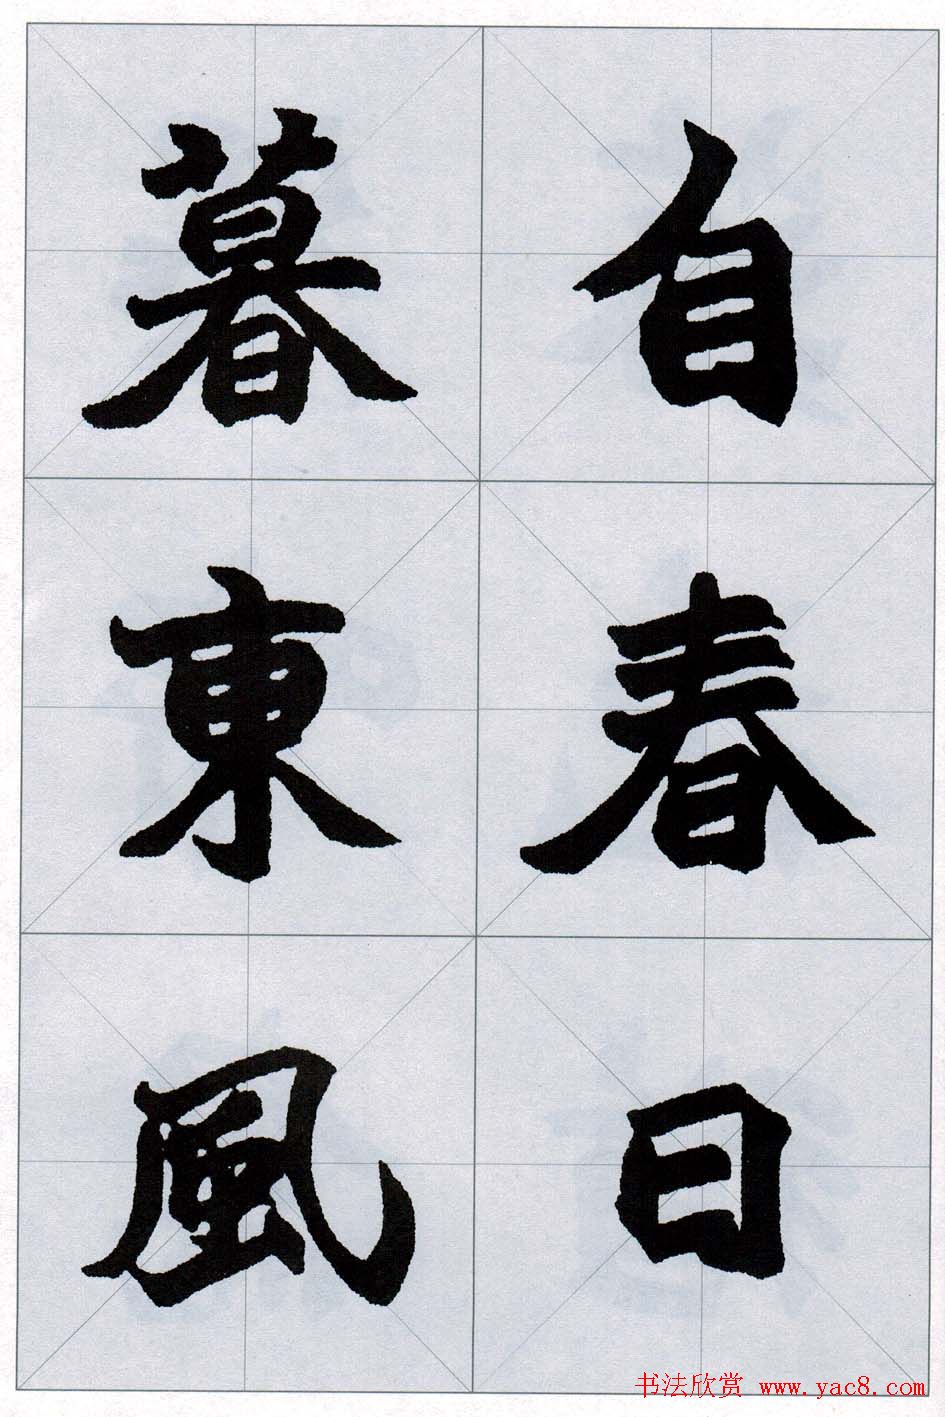 自春日
暮東風
书法欣赏 www.yac8.com